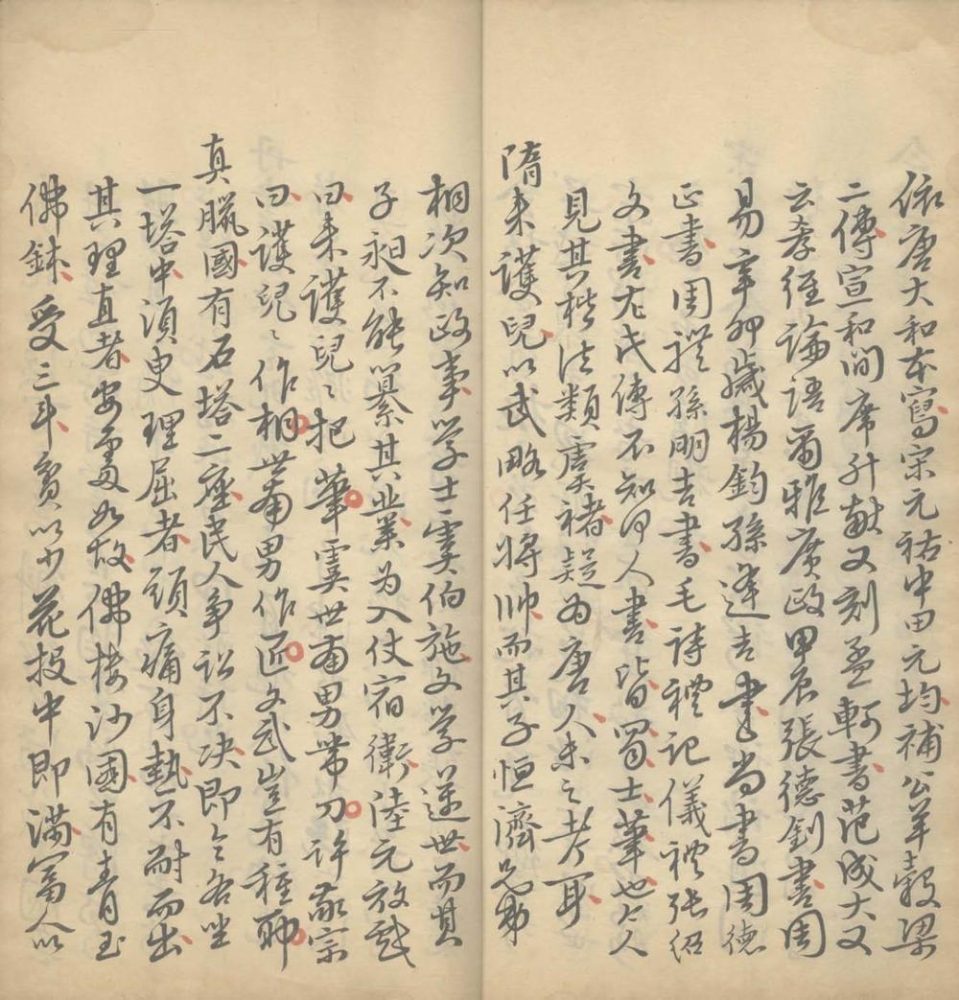 依唐大和本寫宋元祐中田元均補公羊穀梁
二傳宣和間席升獻又刻孟軻書范成大又
云孝經論語爾雅廣政甲辰張德釗書周
易辛卯歲楊鈞孫逢吉書尚書周德
正書周禮孫朋吉書毛詩禮記儀禮張紹
文書左氏傳不知何人書皆蜀士筆也今人
見其楷法類虞褚疑為唐人未之考耳
隋来護兒以武略任將帥而其子恒濟兄弟
相次知政事學士虞伯施文學逆世而其
子昶不能纂其業為入仗宿衛陸元放戲
曰来護兒〻把筆虞世南男帶刀許敬宗
曰護兒〻作相世南男作匠文武豈有種耶
真臘國有石塔二座民人爭訟不决即令各坐
一塔中須臾理屈者頭痛身熱不耐而出
其理直者安處如故佛樓沙國有青玉
佛鉢受三斗貧以少花投中即满富人以